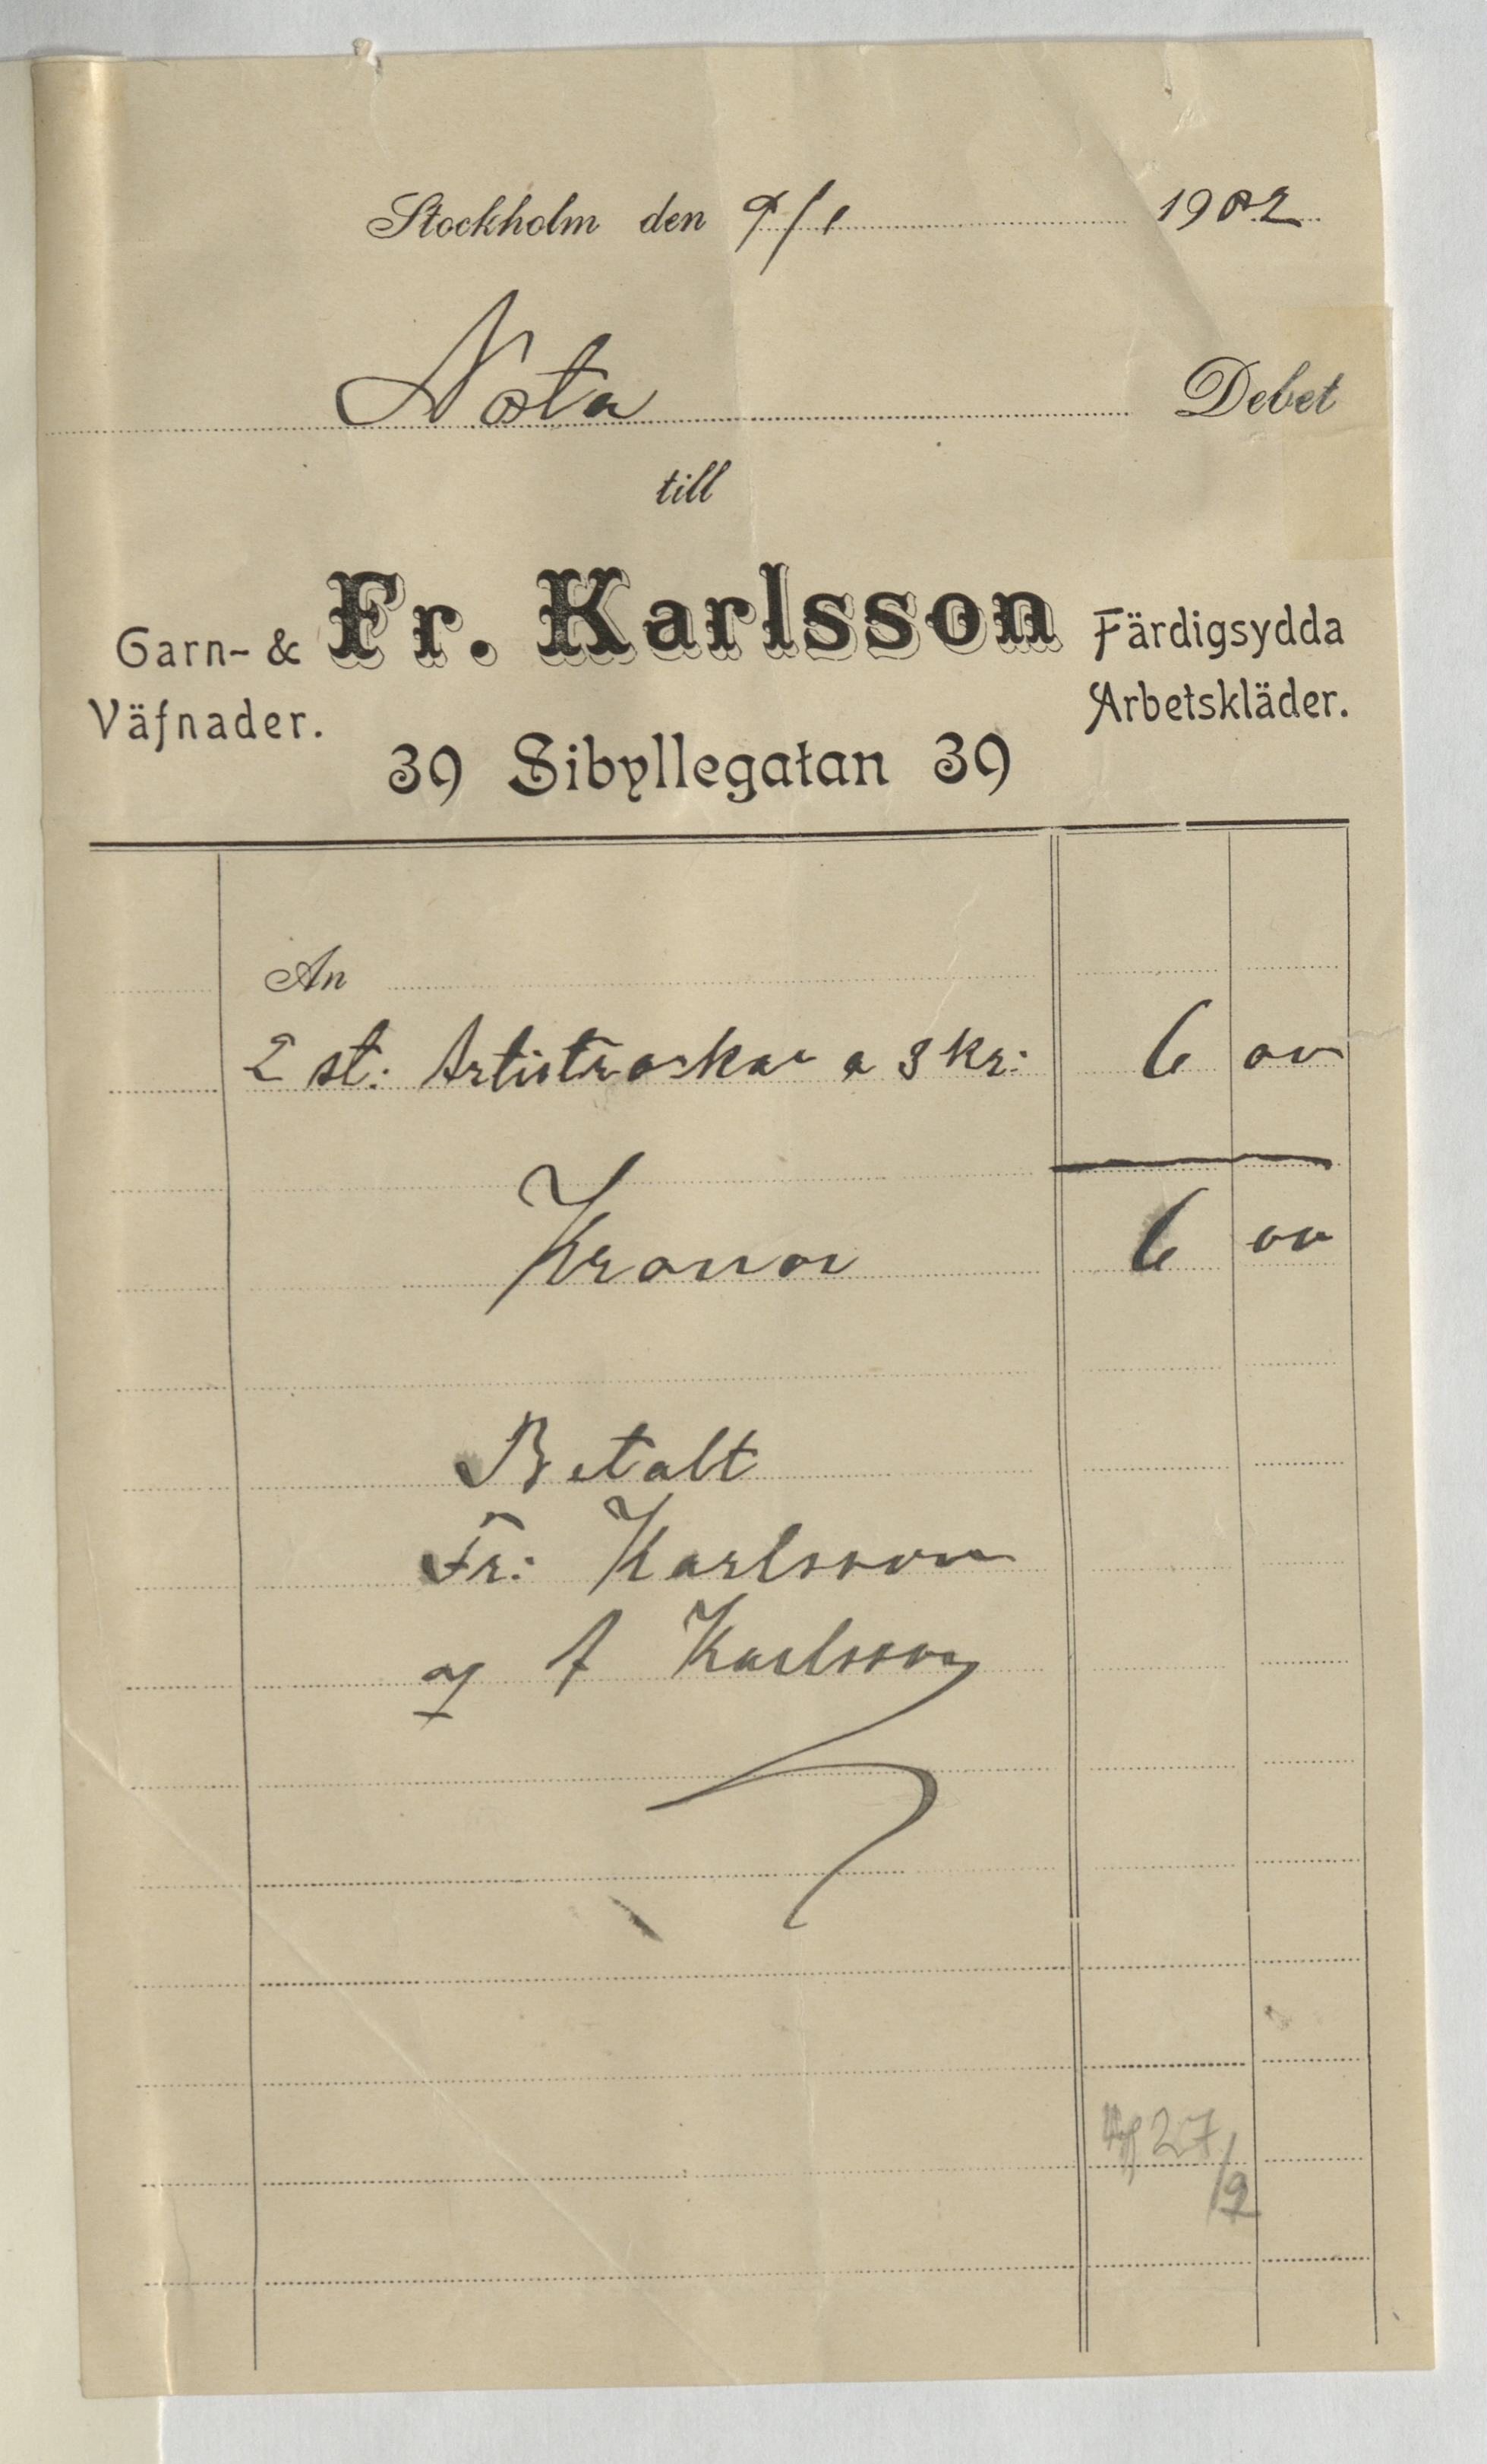 Stockholm den 9/1 1902
Nota Debet
till
Garn- & Fr. Karlsson Färdigsydda
Väfnader. Arbetskläder.
39 Sibyllegatan 39
An
2 st. a 3 kr: 6 00
Kronor 6 00
Betalt
Fr: Karlsson
g A Karlsson
27/2